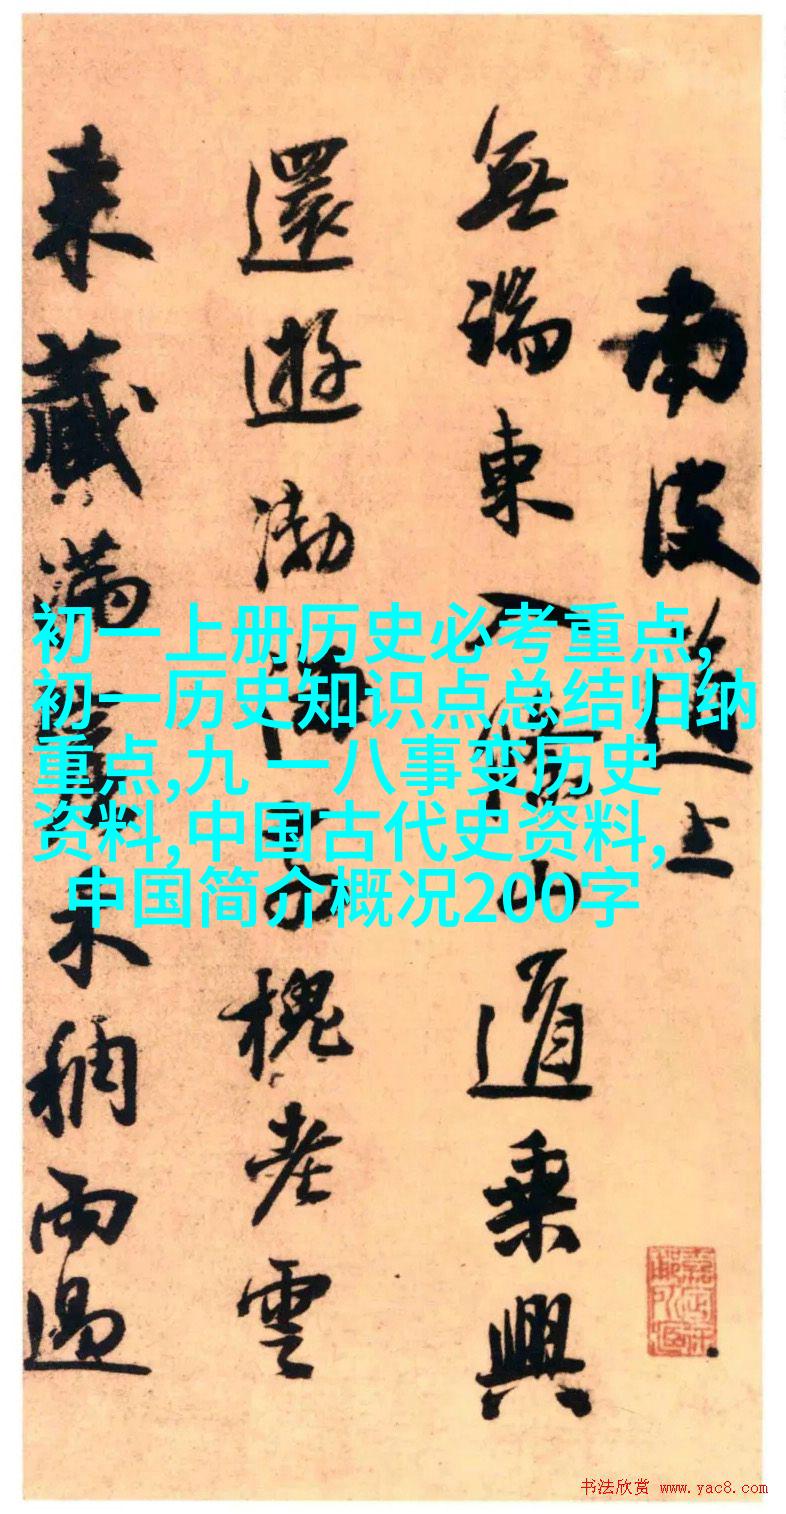 初一上册历史必考重点,
初一历史知识点总结归纳
重点,九 一八事变历史
资料,中国古代史资料,
中国简介概况200字
南皮道上
無端東入山道乘興
還遊渤海槐老雲
來藏滿禾稠雨過
书法欣赏 www.yac8.com